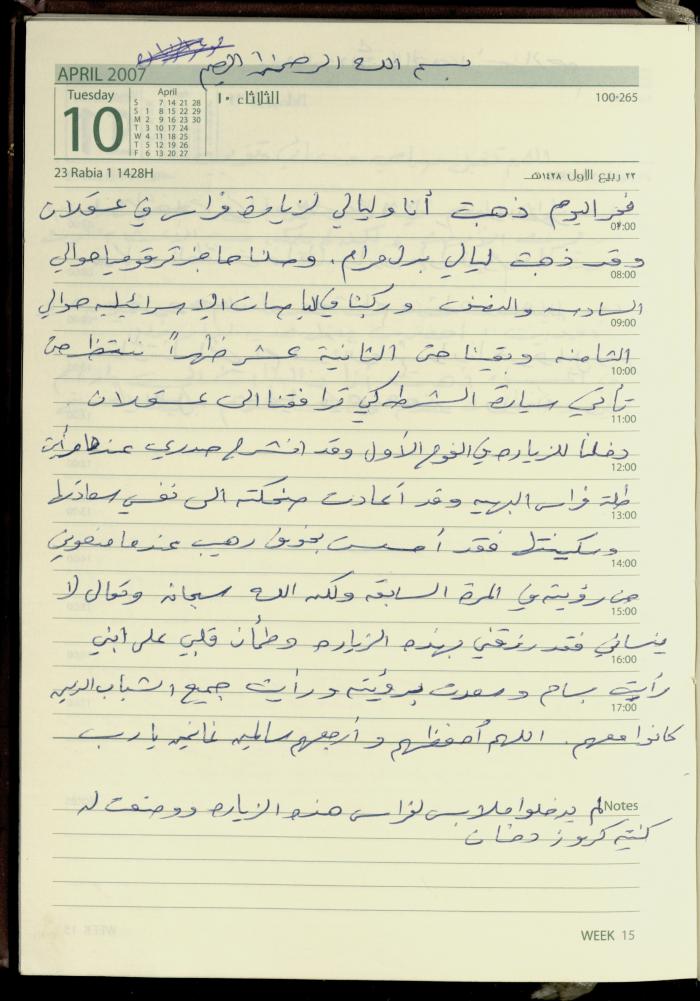 بسم الله الرحمن الرحيم
APRIL 2007
Tuesday
10
April
S 7 14 21 28
S 1 8 15 22 29
M 2 9 16 23 30
T 3 10 17 24
W 4 11 18 25
T 5 12 19 26
F 6 13 20 27
الثلاثاء ١٠
100-265
23 Rabia 1 1428H
٢٢ ربيع الاول ١٤٢٨هـ
فجر اليوم ذهبت أنا وليالي لزيارة فراس في عسقلان
07:00
وقد ذهبت ليالي بدل مرام. وصلنا حاجز ترقوميا حوالي
08:00
السادسه والنصف وركبنا في الباصات الإسرائيليه حوالي
09:00
الثامنه وبقينا حتى الثانية عشر ظهراً ننتظر حتى
10:00
تأتي سيارة الشرطه كي ترافقنا الى عسقلان.
11:00
دخلنا للزياره في الفوج الأول وقد انشرح صدري عندما رأيت
12:00
طلة فراس البهيه وقد أعادت ضحكته الى نفسي سعادتها
13:00
وسكينتها فقد أحسست بخوف رهيب عندما منعوني
14:00
من رؤيته في المرة السابقه ولكن الله سبحانه وتعالى لا
15:00
ينساني فقد رزقني بهذه الزياره وطمأن قلبي على ابني
16:00
رأيت بسام وسعدت برؤيته ورأيت جميع الشباب الذين
17:00
كانوا معهم. اللهم أحفظهم وأرجعهم سالمين غانمين يا رب
Notes
لم يدخلوا ملابس لفراس هذه الزياره ووضعت له
كنتين كروز دخان
WEEK 15